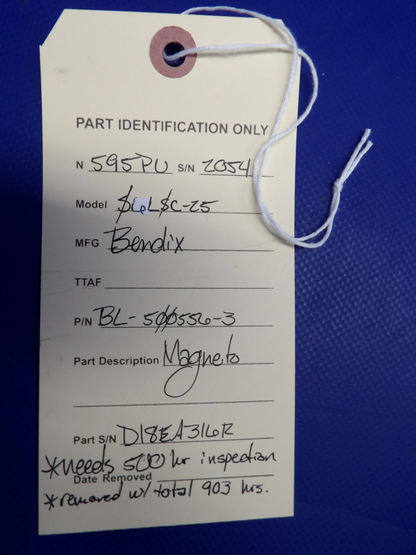 PART IDENTIFICATION ONLY
N 595PU S/N 2054
Model S6LSC-25
MFG Bendix
TTAF
P/N BL-500556-3
Part Description Magneto
Part S/N D18EA316R
*needs 500 hr inspection
Date Removed
*removed w/ total 903 hrs.